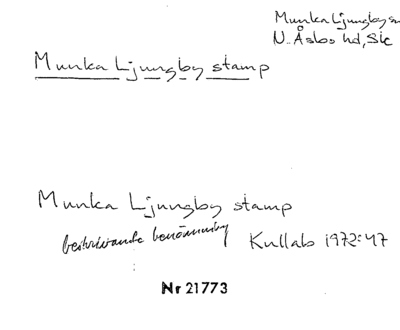 Munka Ljungby sn
N. Åsbo hd, Sk
Munka Ljungby stamp
Munka Ljungby stamp
beskrivande benämning
Kullab 1972:47
Nr 21773